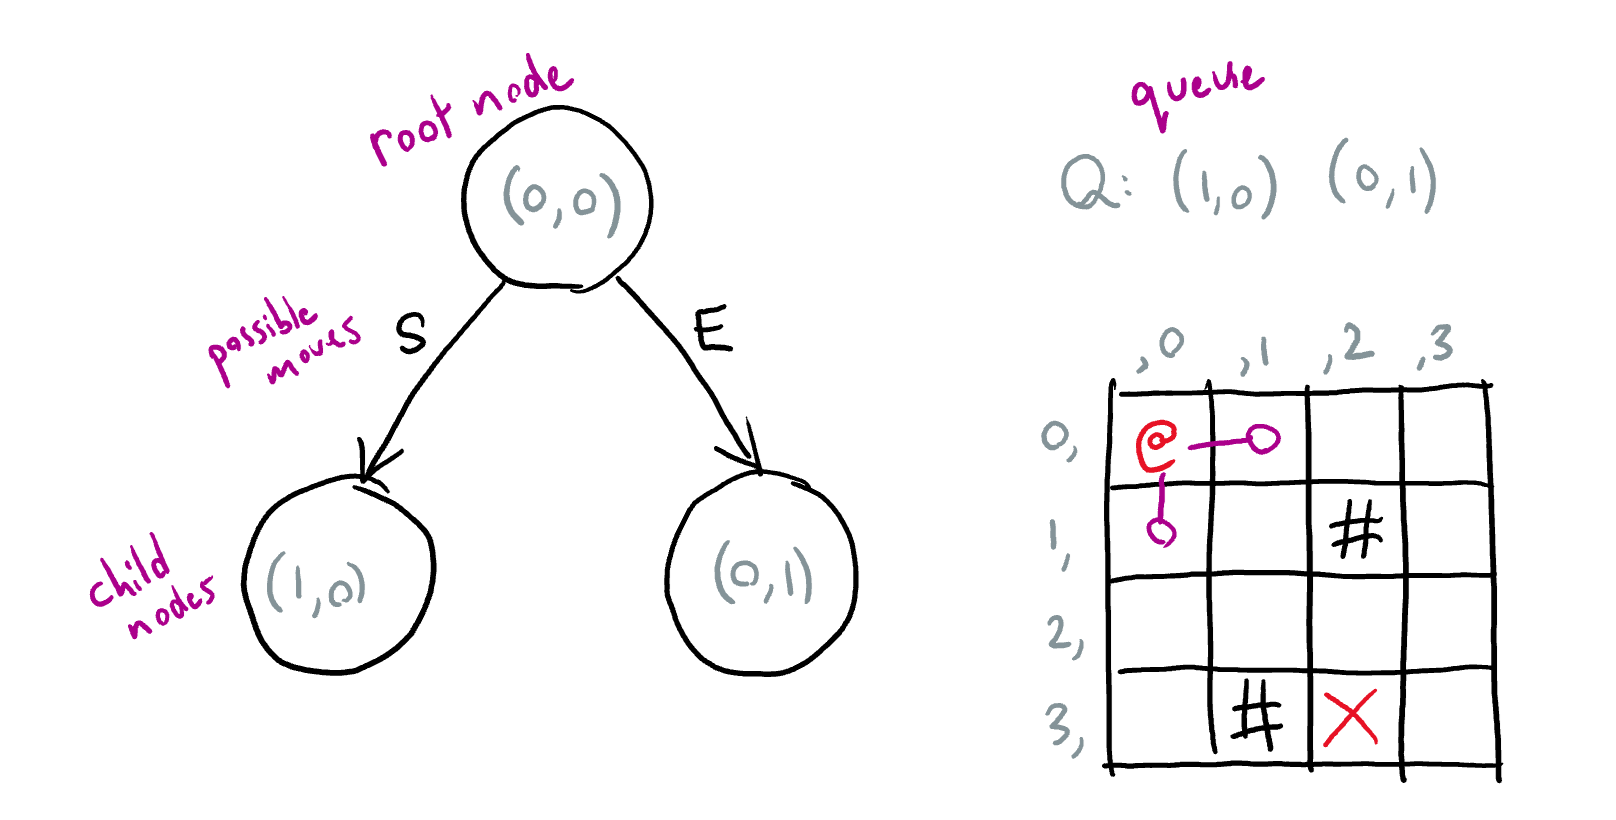 root node
(0,0)
possible
moves
S
E
child
nodes
(1,0)
(0,1)
queue
Q: (1,0) (0,1)
,0 ,1 ,2 ,3
0, @
1, #
2,
3, # X